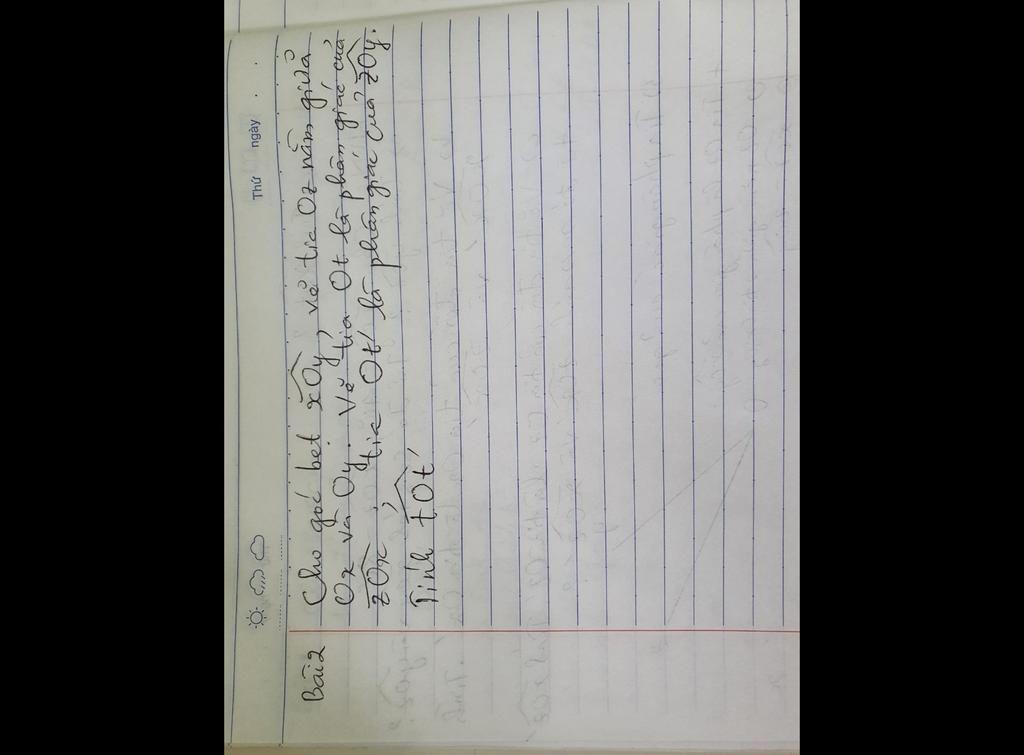 Thứ ngày
Bài 2 Cho góc bẹt xOy, vẽ tia Oz nằm giữa
Ox và Oy. Vẽ tia Ot là phân giác của
zOx, tia Ot' là phân giác của zOy.
Tính tOt'